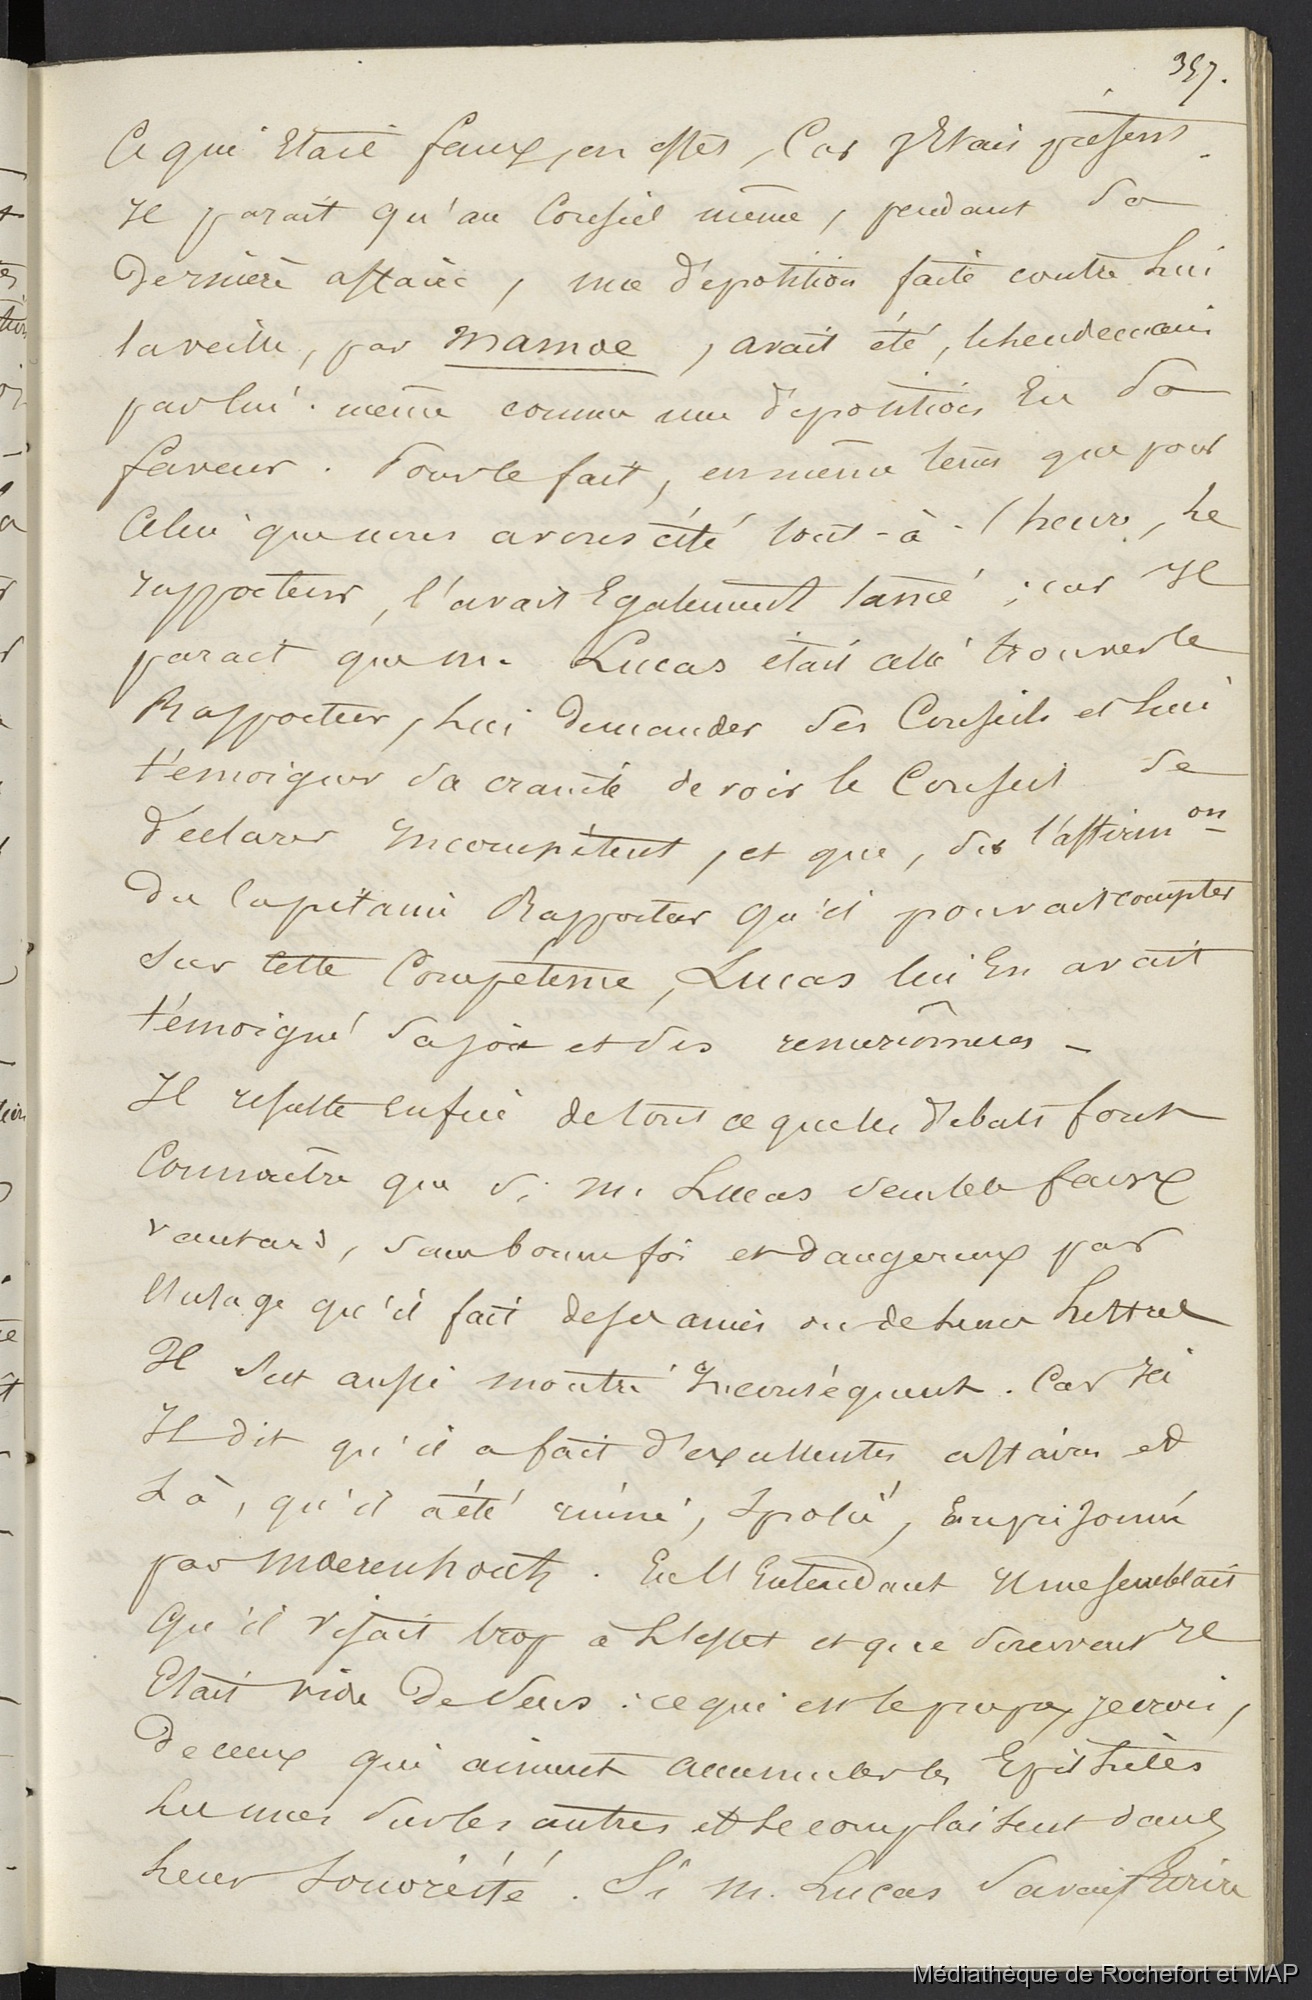 357.
Ce qui Etait faux, en effet, Car J'Etais présent.
Il parait qu'au Conseil même, pendant Sa
Dernière affaire, une déposition faite contre Lui
la veille, par Mamoe, avait été, le hendemain
par lui-même comme une déposition En Sa
faveur. Pour le fait, en même tems que pour
Celui que nous avons cité tout-à-l'heure, Le
rapporteur, l'avait Egalement tancé ; car Il
parait que M. Lucas était allé trouver le
Rapporteur, Lui Demander Ses Conseils et Lui
témoigner Sa crainte de voir le Conseil Se
déclarer Incompétent, et que, Sur l'affirmon
Du Capitaine Rapporteur qu'il pouvait compter
Sur cette Compétence, Lucas lui En avait
témoigné Sa joie et Ses
Il résulte Enfin de tout ce que les Débats font
Connaitre que Si M. Lucas Semble faux
vantard, Sans bonne foi et Dangereux par
l'usage qu'il fait de ses amis ou de Leurs Lettres
Il S'est aussi montré Inconséquent. Car Ici
Il dit qu'il a fait d'excellentes affaires et
Là, qu'il a été ruiné, Spolié, Emprisonné
par Moerenhout. En l'Entendant Il me semblait
Qu'il visait trop à L'effet et que Souvent Il
Etait vide De Sens : ce qui est le propre, je crois,
De ceux qui aiment accumuler les Epithètes
Les unes Sur les autres et Se complaisent dans
Leur Sonorité. Si M. Lucas Savait Ecrire
Médiathèque de Rochefort et MAP